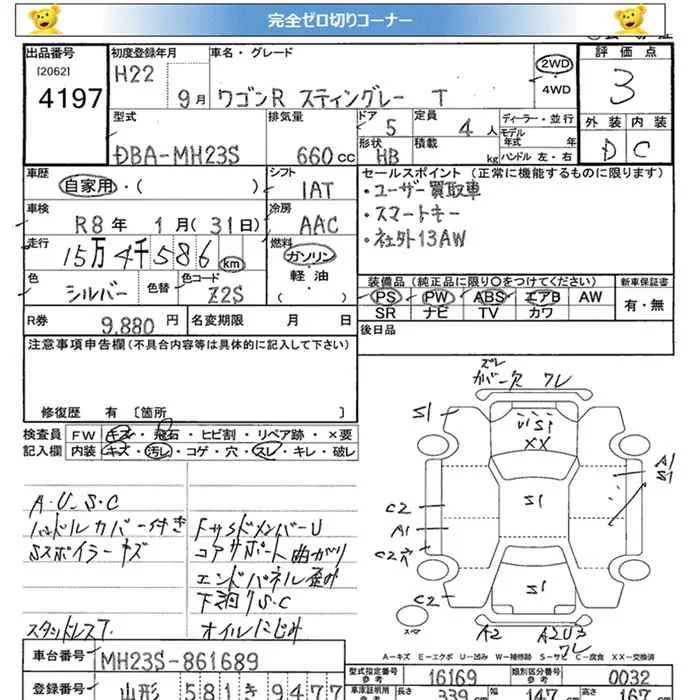 完全ゼロ切りコーナー
出品番号
[2062]
4197
初度登録年月
H22
9月
車名・グレード
ワゴンR スティングレー T
2WD
4WD
評価点
3
外装 内装
D C
型式
DBA-MH23S
排気量
660cc
ドア
5
定員
4人
形状
HB
積載
kg
ディーラー・並行
モデル年式 年
ハンドル 左・右
車歴
自家用・( )
シフト
IAT
車検
R8年 1月(31日)
冷房
AAC
走行
15万4千586km
燃料
ガソリン
軽・油
( )
色
シルバー
色替
色コード
Z2S
R券
9,880円
名変期限 月 日
セールスポイント(正常に機能するものに限ります)
・ユーザー買取車
・スマートキー
・社外13AW
装備品(純正品に限り〇をつけてください)
PS PW ABS エアB AW
SR ナビ TV カワ
新車保証書
有・無
後日品
注意事項申告欄(不具合内容等は具体的に記入して下さい)
修復歴 有〔箇所 〕
検査員 FW キズ・飛石・ヒビ割・リペア跡・×要
記入欄 内装 キズ・汚レ・コゲ・穴・スレ・キレ・破レ
A・U・S・C
ハンドルカバー付き
Sスポイラーキズ
スタッドレス
FサイドメンバーU
コアサポート曲がり
エンドパネル歪み
下廻りS・C
オイルにじみ
ズレ
ガバ欠 ワレ
S1
U1 S1
XX
A1
S1
C2
S1
A1
C2 穴
S1
C2
スペア
A2
A2U3
ワレ
A-キズ E-エクボ U-凹み W-補修跡 S-サビ C-腐食 XX-交換済
車台番号
MH23S-861689
型式指定番号 参考
16169
類別区分番号 参考
0032
登録番号
山形 581 き 9477
車庫証明用 参考
長さ
339cm
幅
147cm
高さ
167